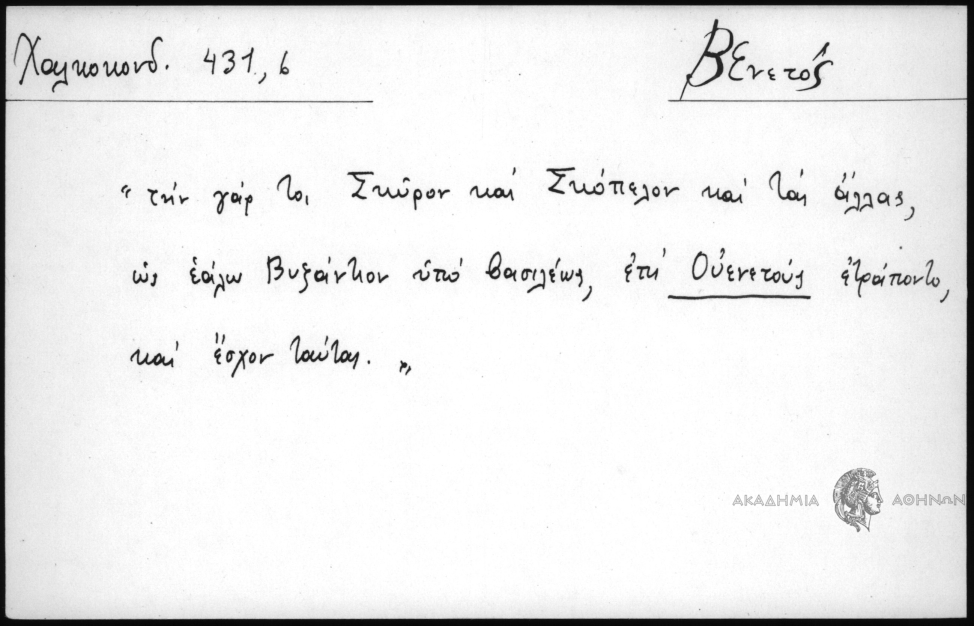 Χαλκοκονδ. 431, 6
Βενετός
"τὴν γάρ τοι Σκῦρον καὶ Σκόπελον καὶ τὰς ἄλλας,
ὡς ἑάλω Βυζάντιον ὑπὸ βασιλέως, ἐπὶ Οὐενετοὺς ἐτράποντο,
καὶ ἔσχον ταύτας."
ΑΚΑΔΗΜΙΑ ΑΘΗΝΩΝ